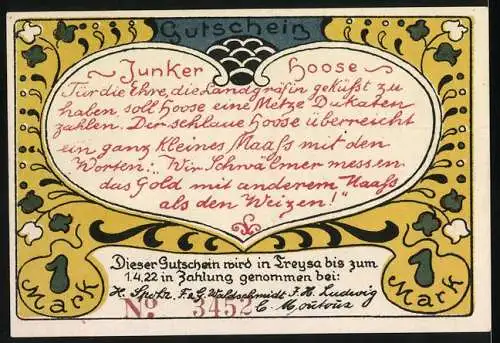 Gutschein
Junker Hoose
Für die Ehre, die Landgräfin geküßt zu
haben, soll Hoose eine Metze Dukaten
zahlen. Der schlaue Hoose überreicht
ein ganz kleines Maaß mit den
Worten: "Wir Schwälmer messen
das Gold mit anderem Maaß
als den Weizen!"
Dieser Gutschein wird in Treysa bis zum
1.4.22 in Zahlung genommen bei:
F. & G. Waldschmidt J. H. Ludwig
No. 3452
1 Mark
1 Mark